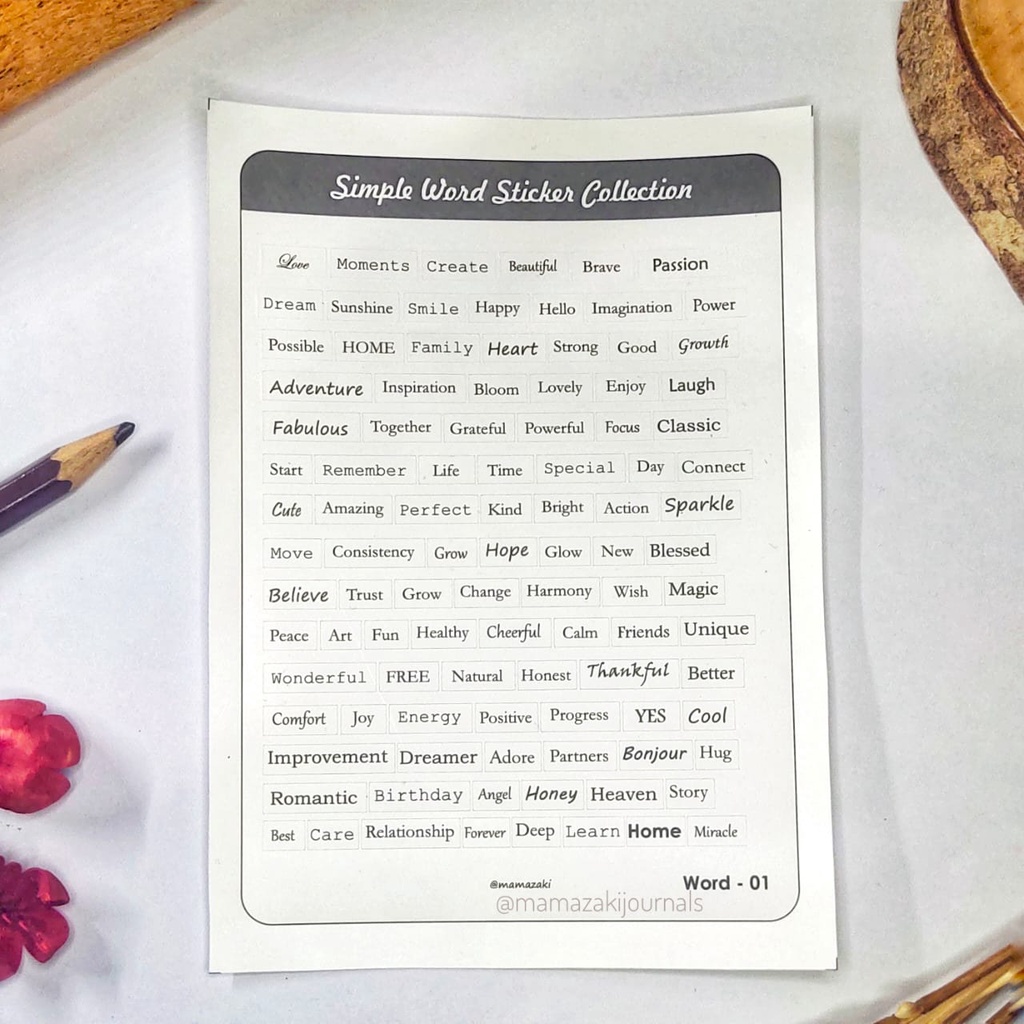 Simple Word Sticker Collection
Love Moments Create Beautiful Brave Passion
Dream Sunshine Smile Happy Hello Imagination Power
Possible HOME Family Heart Strong Good Growth
Adventure Inspiration Bloom Lovely Enjoy Laugh
Fabulous Together Grateful Powerful Focus Classic
Start Remember Life Time Special Day Connect
Cute Amazing Perfect Kind Bright Action Sparkle
Move Consistency Grow Hope Glow New Blessed
Believe Trust Grow Change Harmony Wish Magic
Peace Art Fun Healthy Cheerful Calm Friends Unique
Wonderful FREE Natural Honest Thankful Better
Comfort Joy Energy Positive Progress YES Cool
Improvement Dreamer Adore Partners Bonjour Hug
Romantic Birthday Angel Honey Heaven Story
Best Care Relationship Forever Deep Learn Home Miracle
@mamazaki Word - 01
@mamazakijournals